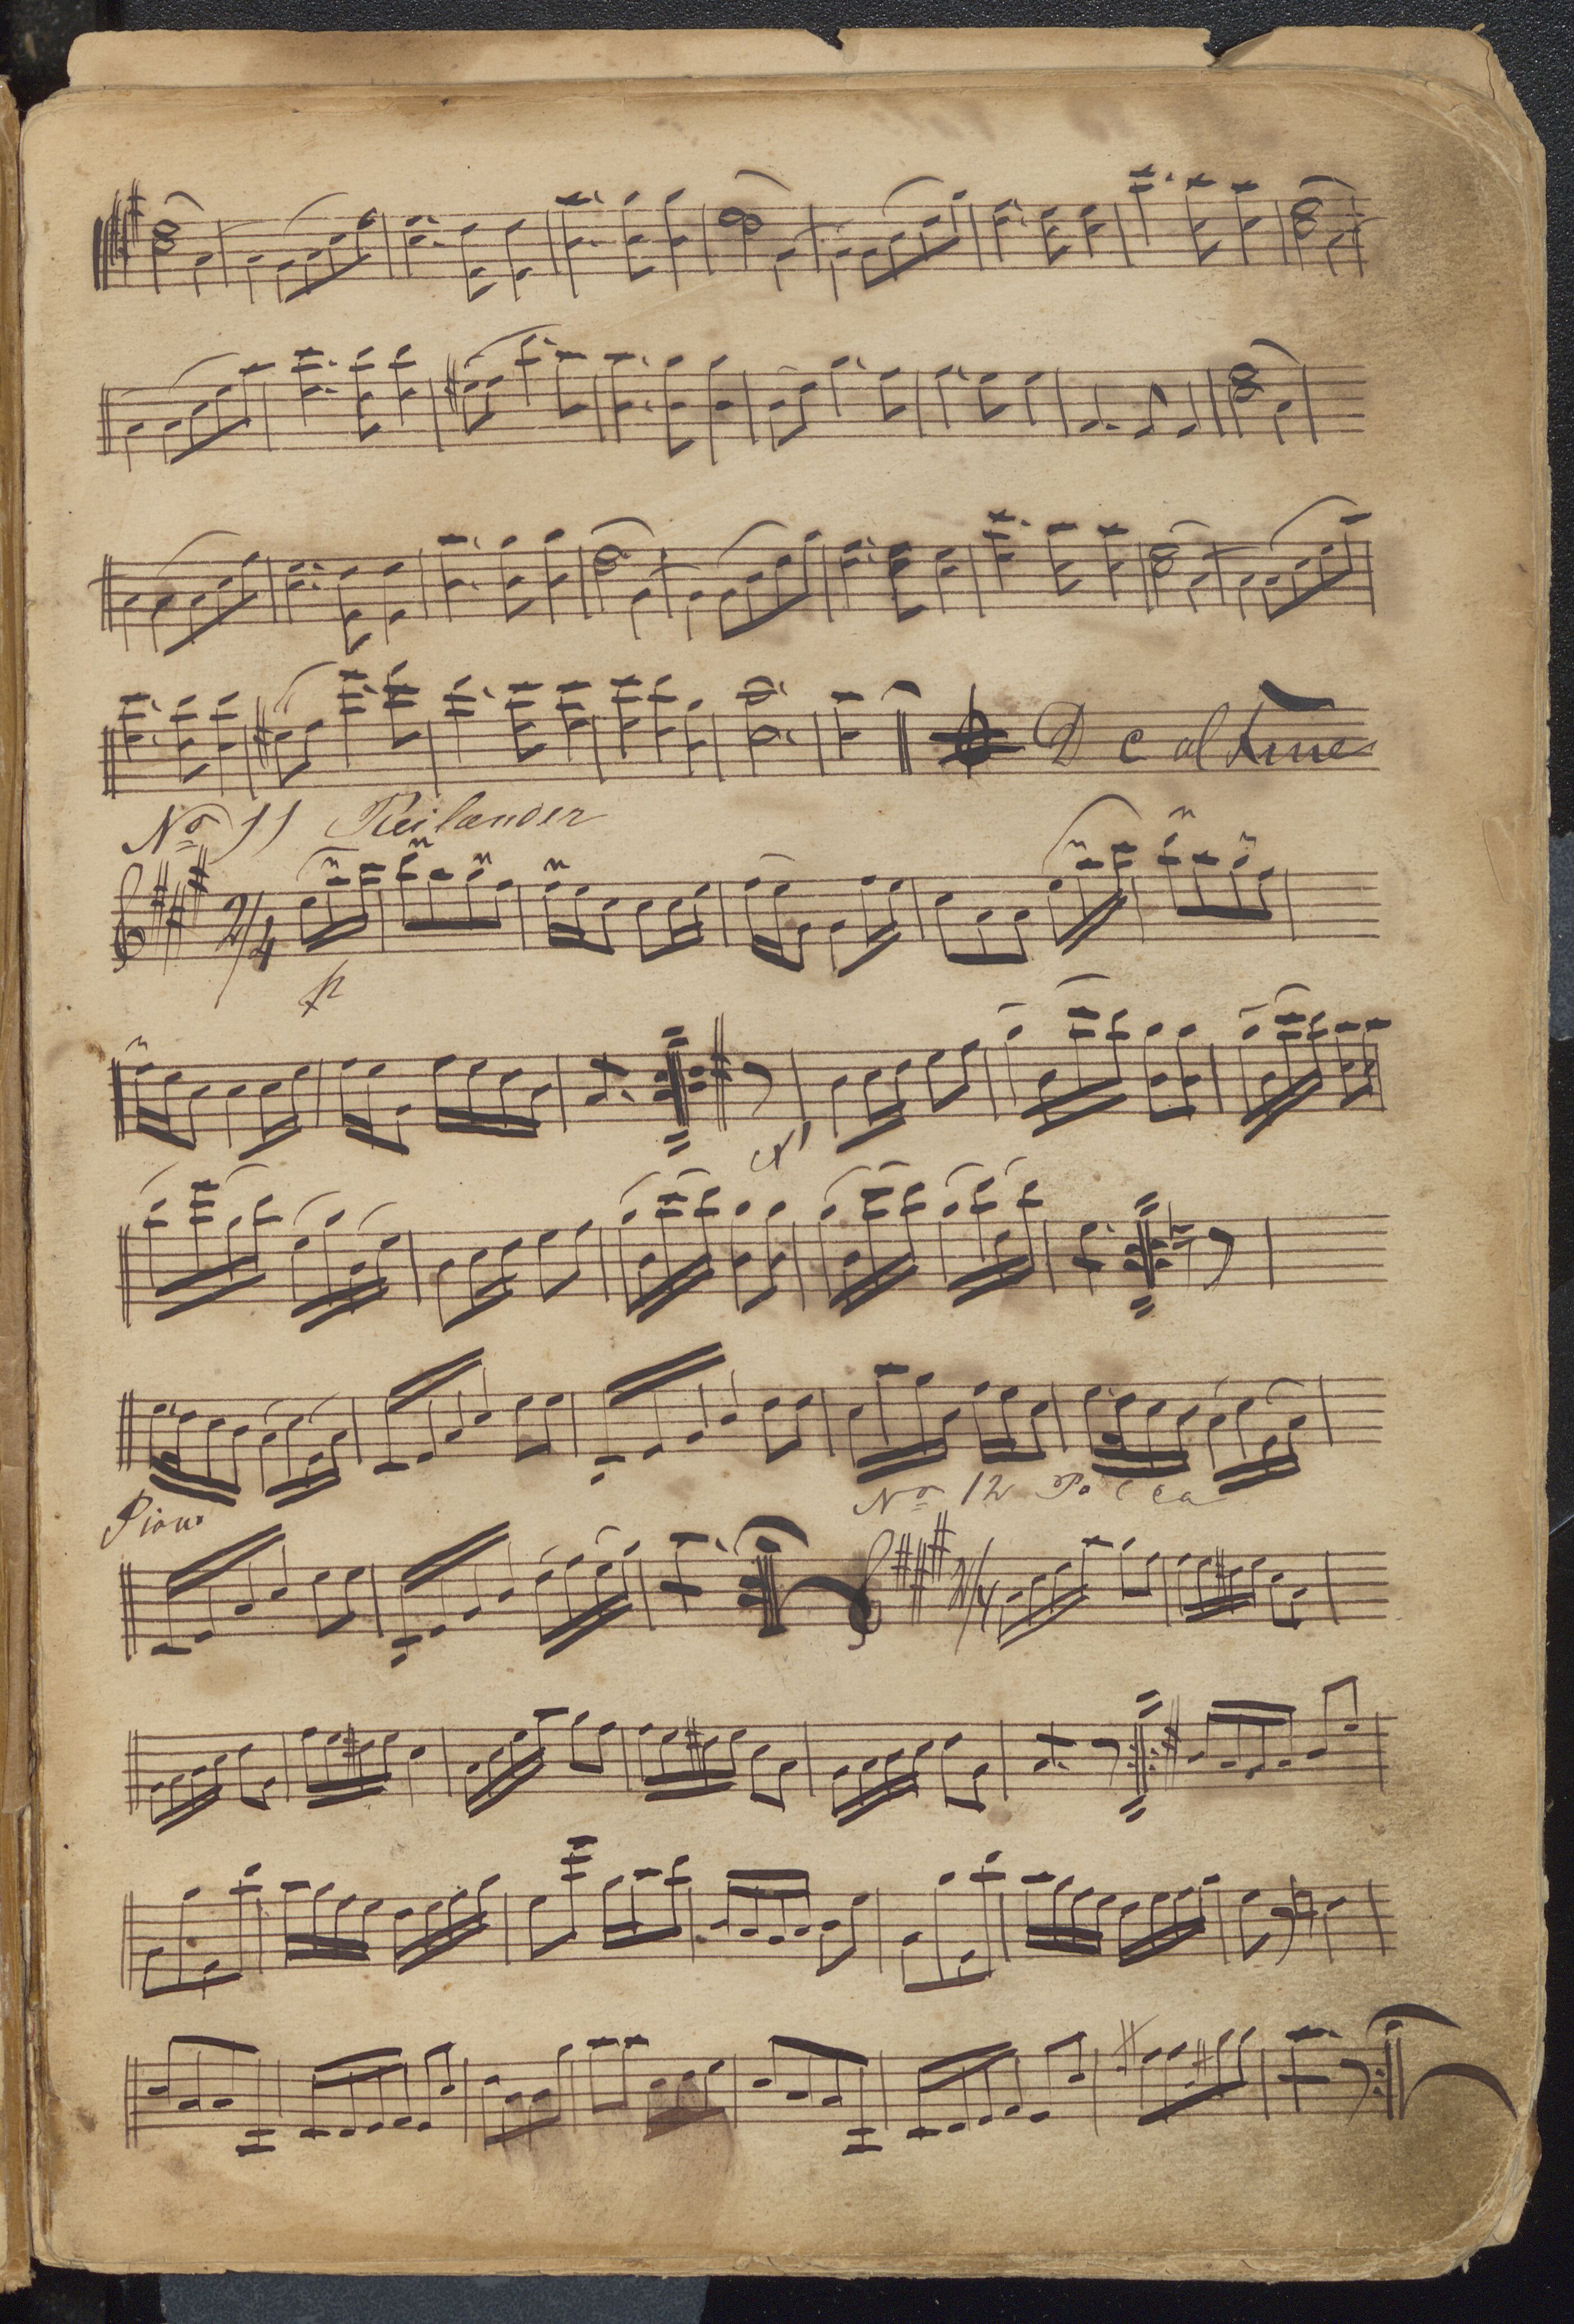 D c al Fine
No 11 Reilander
2/4
p
Piano
No 12 Polcca
2/4